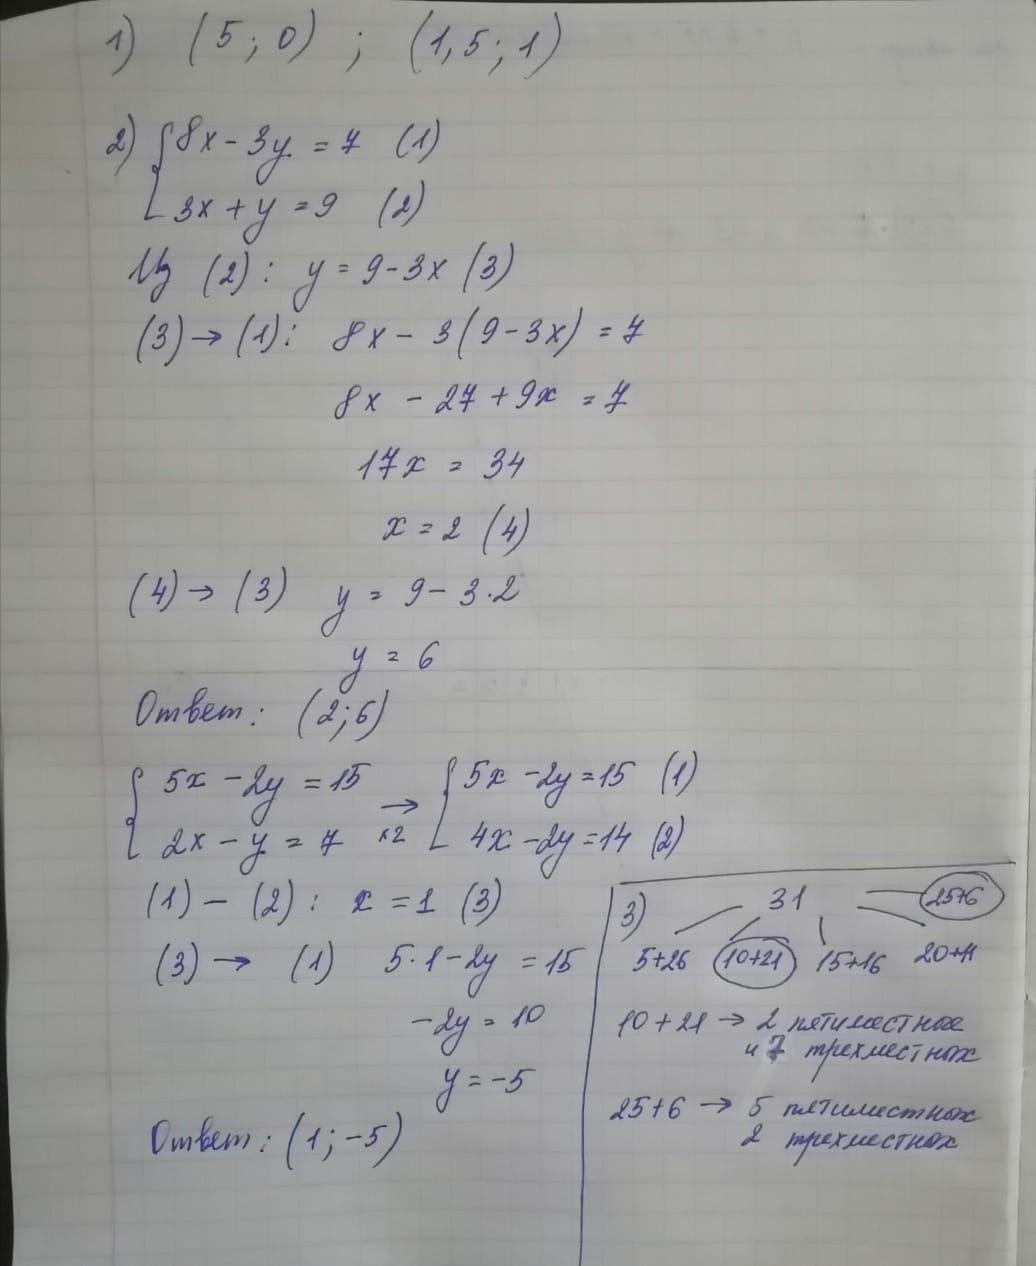 1) (5; 0) ; (1,5; 1)
2) { 8x - 3y = 7 (1)
3x + y = 9 (2)
Из (2): y = 9 - 3x (3)
(3) → (1): 8x - 3(9 - 3x) = 7
8x - 27 + 9x = 7
17x = 34
x = 2 (4)
(4) → (3) y = 9 - 3·2
y = 6
Ответ: (2; 6)
{ 5x - 2y = 15 → { 5x - 2y = 15 (1)
2x - y = 7 x2 4x - 2y = 14 (2)
(1) - (2): x = 1 (3)
(3) → (1) 5·1 - 2y = 15
-2y = 10
y = -5
Ответ: (1; -5)
3) 31 25+6
5+26 10+21 15+16 20+11
10+21 → 2 пятиместных
и 7 трехместных
25+6 → 5 пятиместных
2 трехместных